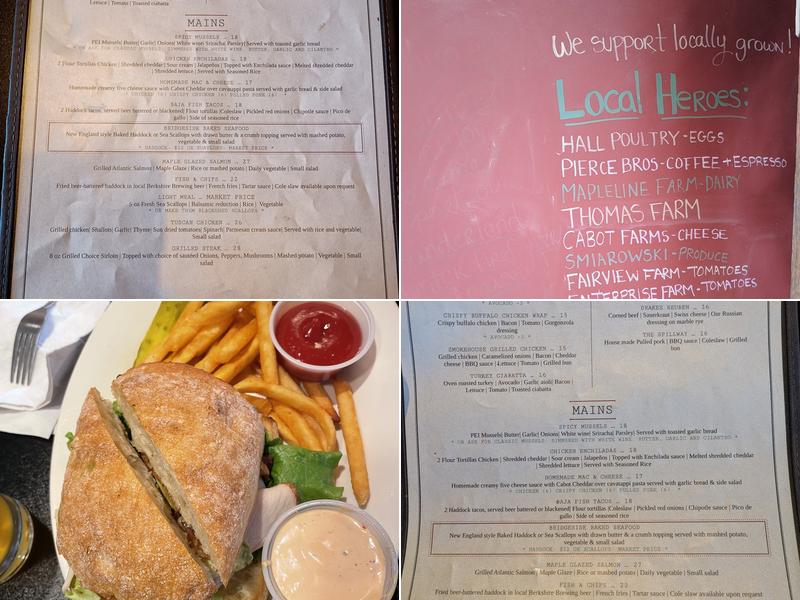 Lettuce | Tomato | Toasted ciabatta
MAINS
SPICY MUSSELS … 18
PEI Mussels| Butter| Garlic| Onions| White wine| Sriracha| Parsley| Served with toasted garlic bread
* OR ASK FOR CLASSIC MUSSELS. SIMMERED WITH WHITE WINE. BUTTER, GARLIC AND CILANTRO *
CHICKEN ENCHILADAS … 18
2 Flour Tortillas Chicken | Shredded cheddar | Sour cream | Jalapeños | Topped with Enchilada sauce | Melted shredded cheddar
| Shredded lettuce | Served with Seasoned Rice
HOMEMADE MAC & CHEESE … 17
Homemade creamy five cheese sauce with Cabot Cheddar over cavatappi pasta served with garlic bread & side salad
BAJA FISH TACOS … 18
2 Haddock tacos, served beer battered or blackened| Flour tortillas |Coleslaw | Pickled red onions | Chipotle sauce | Pico de
gallo | Side of seasoned rice
BRIDGESIDE BAKED SEAFOOD
New England style Baked Haddock or Sea Scallops with drawn butter & a crumb topping served with mashed potato,
vegetable & small salad
* HADDOCK- $22 OR SCALLOPS- MARKET PRICE *
MAPLE GLAZED SALMON … 27
Grilled Atlantic Salmon| Maple Glaze | Rice or mashed potato | Daily vegetable | Small salad
FISH & CHIPS … 22
Fried beer-battered haddock in local Berkshire Brewing beer | French fries | Tartar sauce | Cole slaw available upon request
LIGHT MEAL … MARKET PRICE
5 oz Fresh Sea Scallops | Balsamic reduction | Rice | Vegetable
* OR MAKE THEM BLACKENED SCALLOPS *
TUSCAN CHICKEN … 26
Grilled chicken| Shallots| Garlic| Thyme| Sun dried tomatoes| Spinach| Parmesan cream sauce| Served with rice and vegetable|
Small salad
GRILLED STEAK … 28
8 oz Grilled Choice Sirloin | Topped with choice of sautéed Onions, Peppers, Mushrooms | Mashed potato | Vegetable | Small
salad
We support locally grown!
Local Heroes:
HALL POULTRY-EGGS
PIERCE BROS-COFFEE+ESPRESSO
MAPLELINE FARM-DAIRY
THOMAS FARM
CABOT FARMS-CHEESE
SMIAROWSKI-PRODUCE
FAIRVIEW FARM-TOMATOES
ENTERPRISE FARM-TOMATOES
CRISPY BUFFALO CHICKEN WRAP … 15
Crispy buffalo chicken | Bacon | Tomato | Gorgonzola
dressing
SMOKEHOUSE GRILLED CHICKEN … 15
Grilled chicken | Caramelized onions | Bacon | Cheddar
cheese | BBQ sauce | Lettuce | Tomato | Grilled
bun
TURKEY CIABATTA … 16
Oven roasted turkey | Avocado | Garlic aioli| Bacon |
Lettuce | Tomato | Toasted ciabatta
DRAKES REUBEN … 16
Corned beef | Sauerkraut | Swiss cheese | Our Russian
dressing on marble rye
THE SPILLWAY … 16
House made Pulled pork | BBQ sauce | Coleslaw | Grilled
bun
MAINS
SPICY MUSSELS … 18
PEI Mussels| Butter| Garlic| Onions| White wine| Sriracha| Parsley| Served with toasted garlic bread
* OR ASK FOR CLASSIC MUSSELS. SIMMERED WITH WHITE WINE. BUTTER, GARLIC AND CILANTRO *
CHICKEN ENCHILADAS … 18
2 Flour Tortillas Chicken | Shredded cheddar | Sour cream | Jalapeños | Topped with Enchilada sauce | Melted shredded cheddar
| Shredded lettuce | Served with Seasoned Rice
HOMEMADE MAC & CHEESE … 17
Homemade creamy five cheese sauce with Cabot Cheddar over cavatappi pasta served with garlic bread & side salad
BAJA FISH TACOS … 18
2 Haddock tacos, served beer battered or blackened| Flour tortillas |Coleslaw | Pickled red onions | Chipotle sauce | Pico de
gallo | Side of seasoned rice
BRIDGESIDE BAKED SEAFOOD
New England style Baked Haddock or Sea Scallops with drawn butter & a crumb topping served with mashed potato,
vegetable & small salad
* HADDOCK- $22 OR SCALLOPS- MARKET PRICE *
MAPLE GLAZED SALMON … 27
Grilled Atlantic Salmon| Maple Glaze | Rice or mashed potato | Daily vegetable | Small salad
FISH & CHIPS … 22
Fried beer-battered haddock in local Berkshire Brewing beer | French fries | Tartar sauce | Cole slaw available upon request